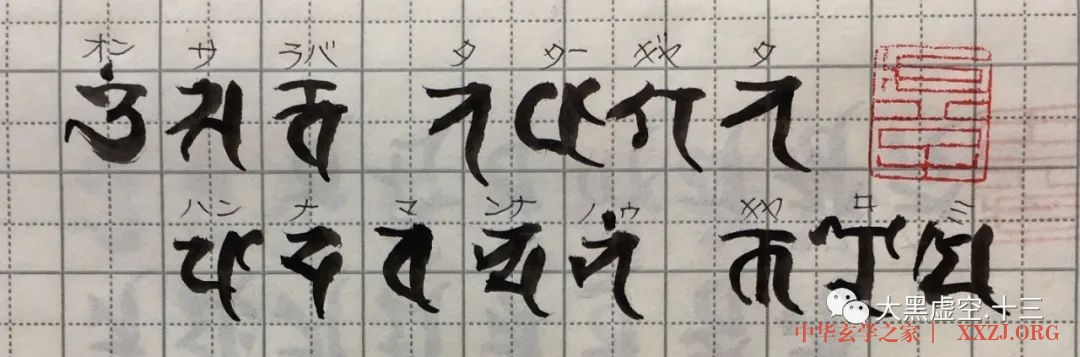 オン サ ラバ タ ター ギャ タ
𑖌𑖼 𑖭 𑖨𑖿𑖪 𑖝 𑖞𑖯 𑖐 𑖝
ハン ナ マ ンナ ノウ キャ ロ ミ
𑖢 𑖟 𑖪 𑖡𑖿𑖟 𑖡𑖽 𑖎 𑖨𑖺 𑖦𑖰
大黑虚空.十三
中华玄学之家 | XXZJ.ORG